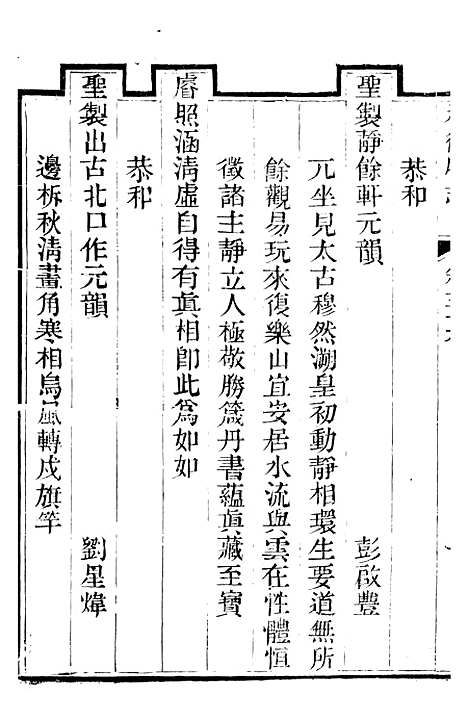 恭和
聖製靜餘軒元韻　　彭啟豐
元坐見太古穆然溯皇初動靜相環生要道無所
餘觀易玩來復樂山宜安居水流與雲在性體恒
徵諸主靜立人極敬勝箴丹書蘊眞藏至寶
睿照涵清虛自得有眞相卽此爲如如
恭和
聖製出古北口作元韻　　劉星煒
邊柝秋淸畫角寒相烏風轉戍旗竿